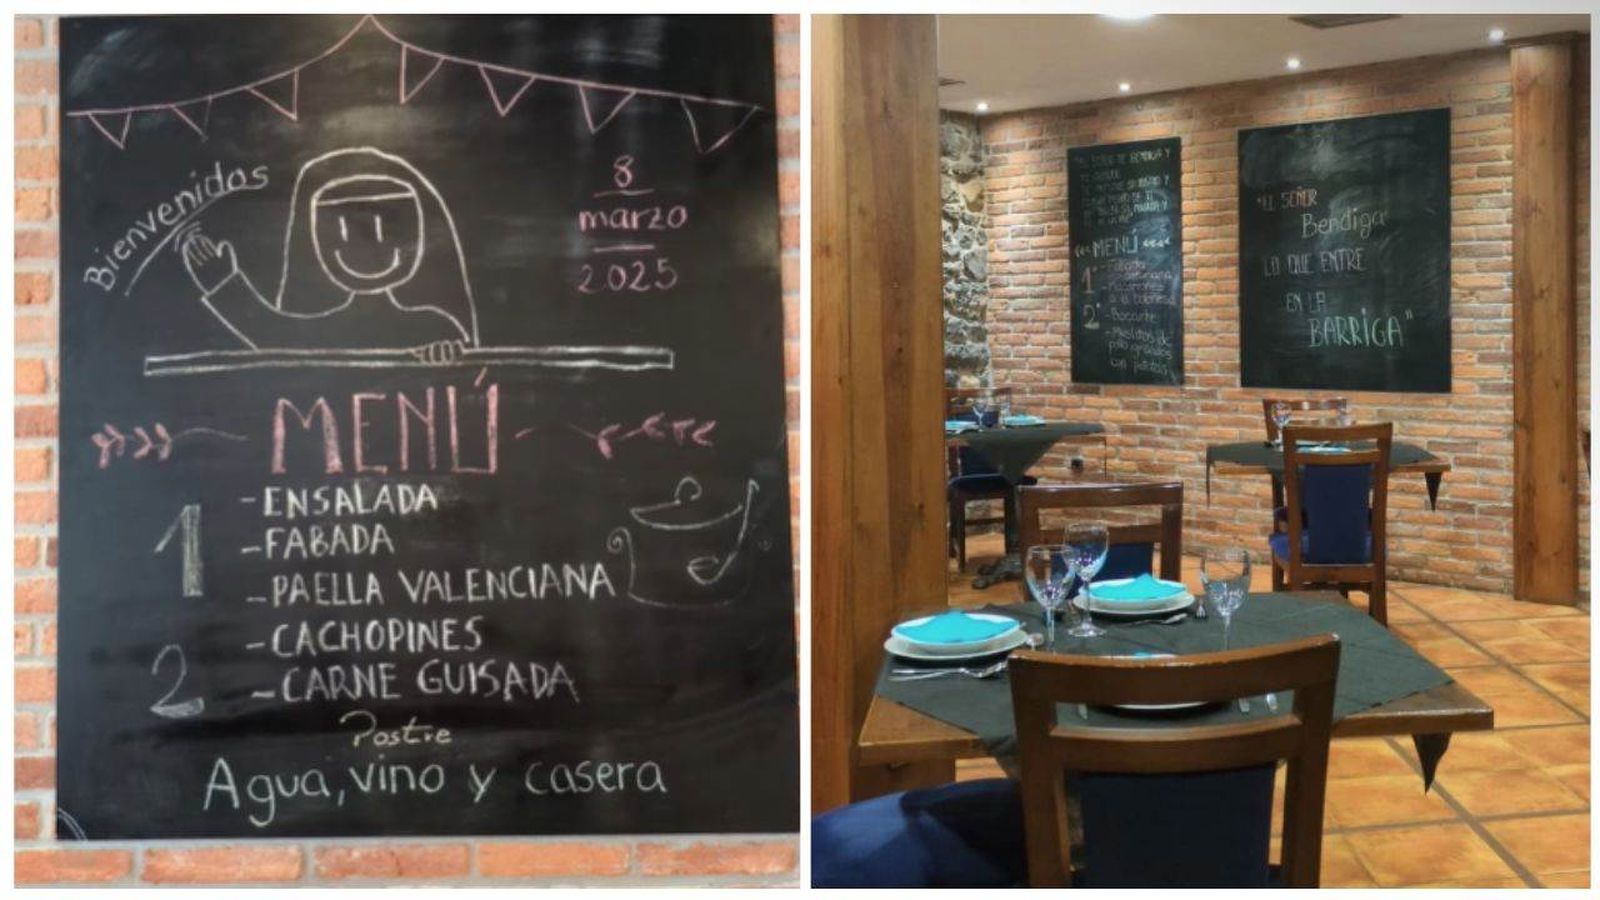 Bienvenidos
8
marzo
2025
MENÚ
1
-ENSALADA
-FABADA
-PAELLA VALENCIANA
2
-CACHOPINES
-CARNE GUISADA
Postre
Agua, vino y casera
SEÑOR TE BENDIGA Y
MENÚ
1º -Fabada
asturiana
-Macarrones
a la boloñesa
2º -Bocarte
-Muslitos de
pollo
con patatas
"EL SEÑOR
Bendiga
LO QUE ENTRE
EN LA
BARRIGA"